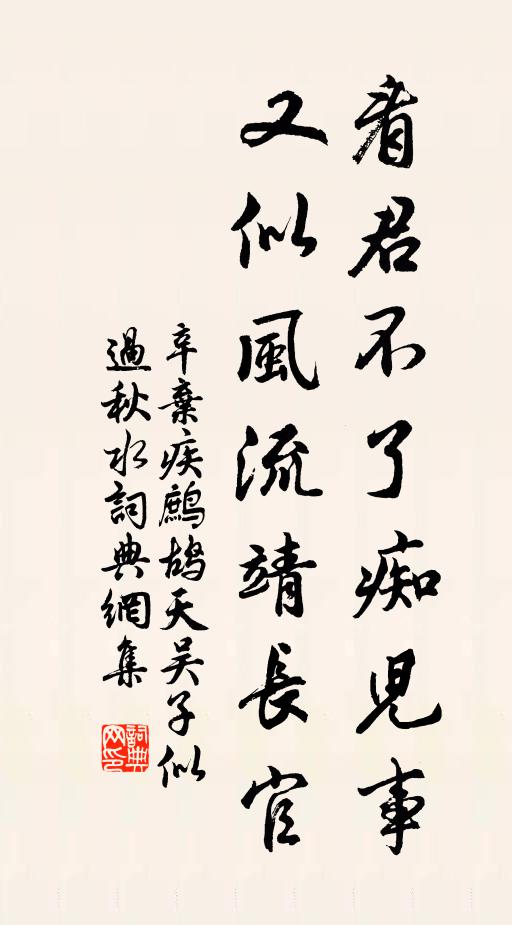 看君不了痴兒事
又似風流靖長官
辛棄疾鷓鴣天吴子似
過秋水詞典網集
詞典网印